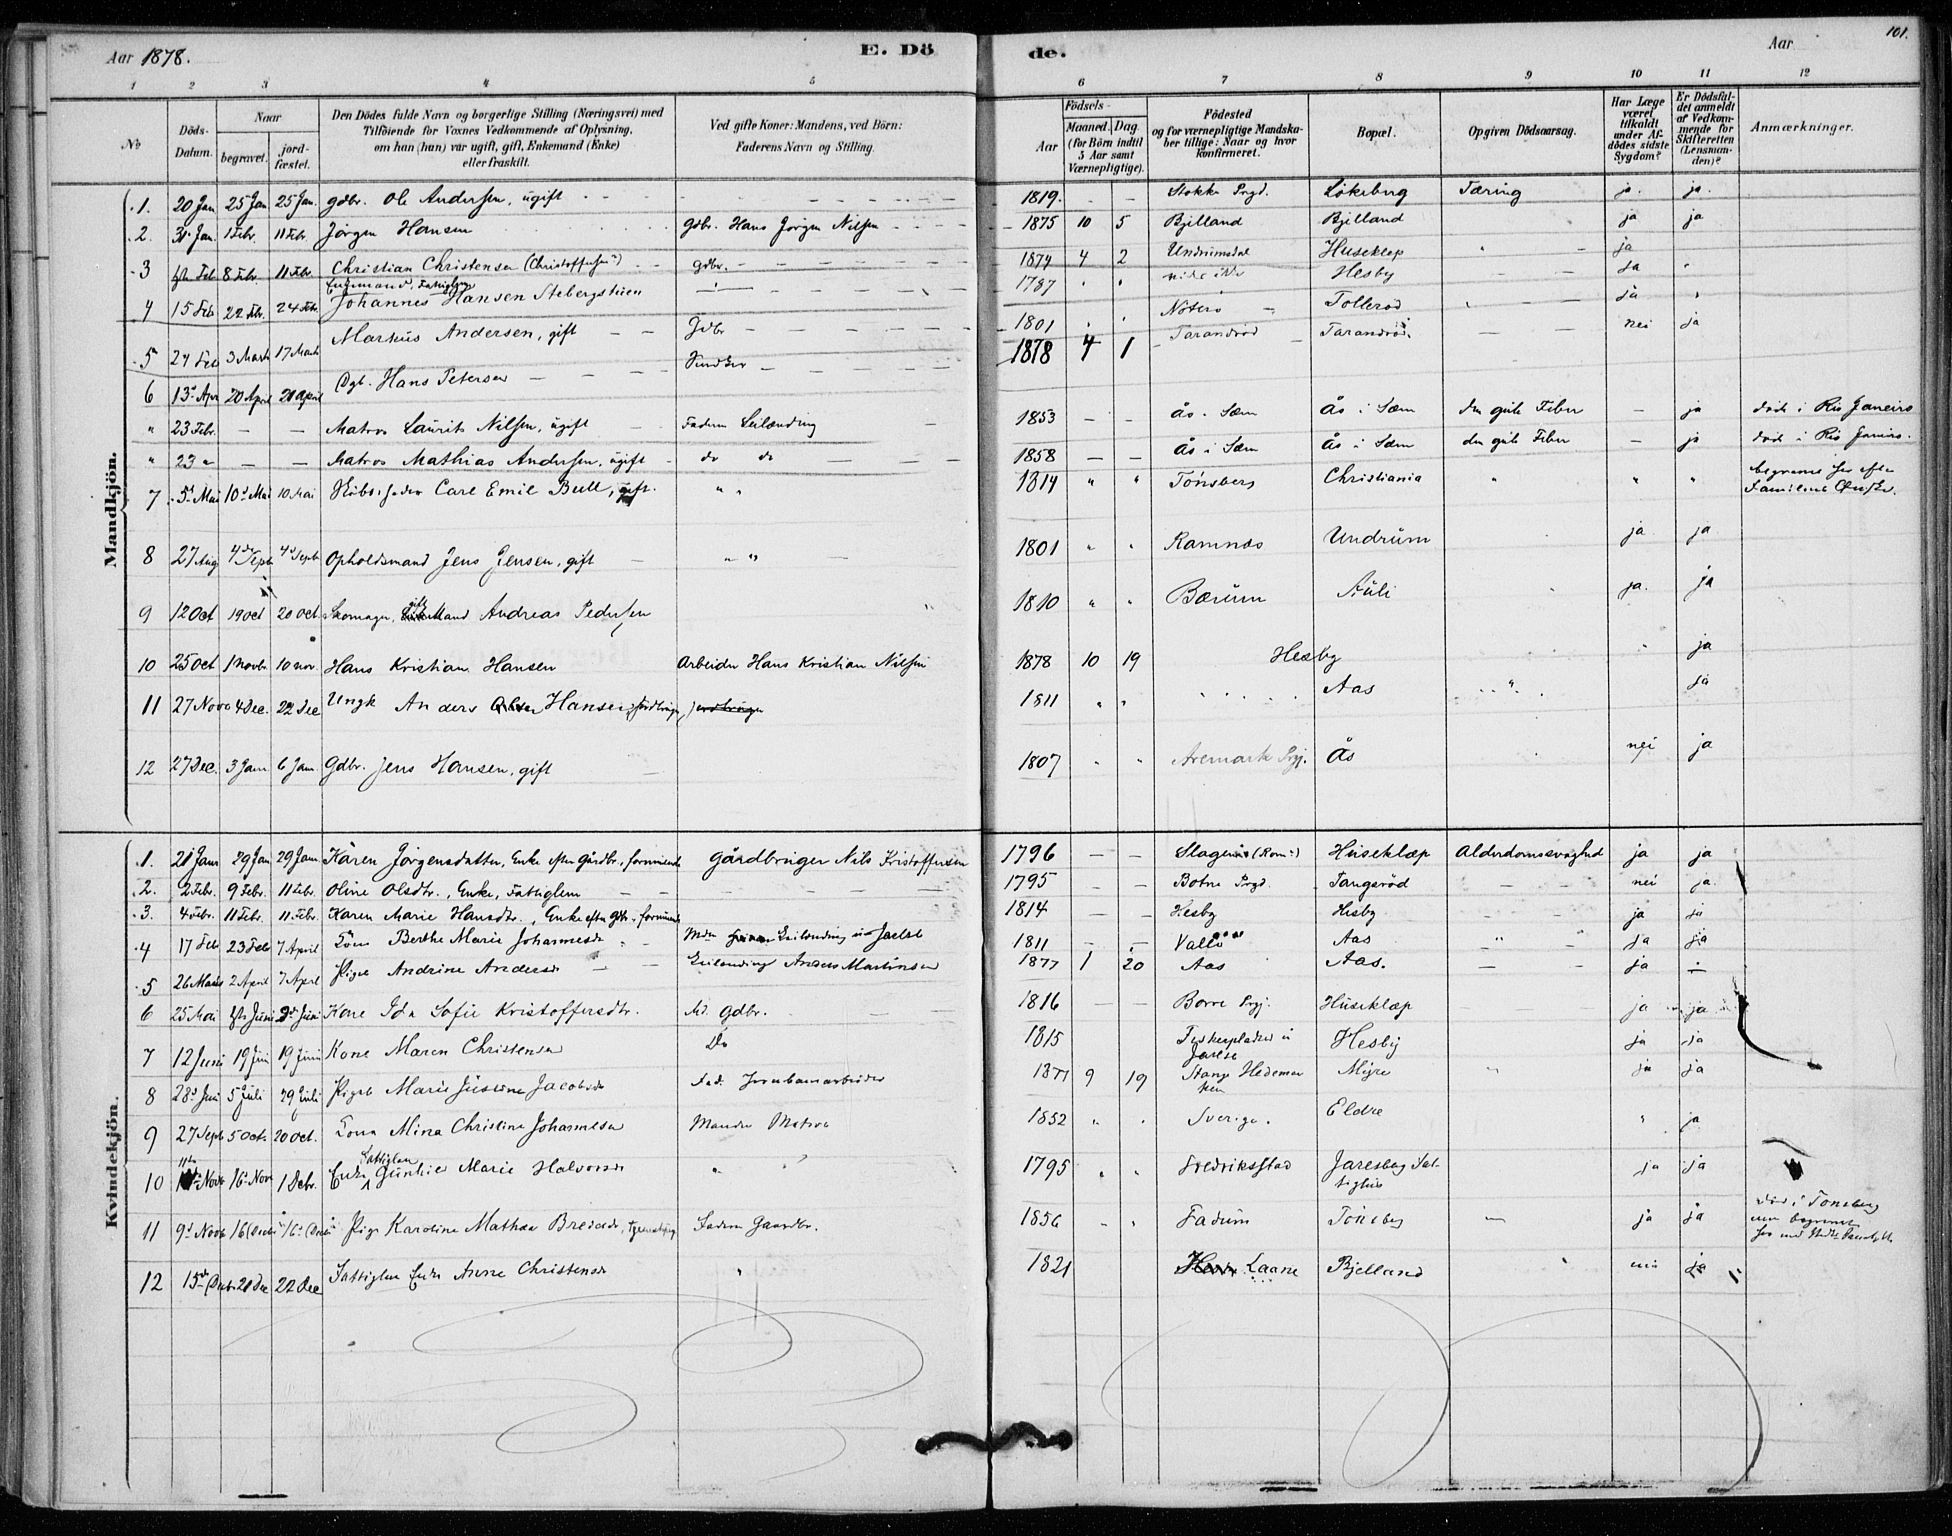 Aar 1878. E. Döde. Aar 101.
1 2 3 4 5 6 7 8 9 10 11 12
No
Döds-Datum.
Naar
begravet.
jord-fæstet.
Den Dödes fulde Navn og borgerlige Stilling (Næringsvei) med
Tilföiende for Voxnes Vedkommende af Oplysning,
om han (hun) var ugift, gift, Enkemand (Enke)
eller fraskilt.
Ved gifte Koner: Mandens, ved Börn:
Faderens Navn og Stilling.
Födsels-
Aar
Maaned. Dag
(for Börn indtil
5 Aar samt
Værnepligtige).
Födested
og for værnepligtige Mandska-
ber tillige: Naar og hvor
konfirmeret.
Bopæl.
Opgiven Dödsaarsag.
Har Læge
været
tilkaldt
under Af-
dödes sidste
Sygdom?
Er Dödsfal-
det anmeldt
af Vedkom-
mende for
Skifteretten
(Lensman-
den)?
Anmærkninger.
Mandkjön.
1. 20 Jan 25 Jan 25 Jan. gdbr. Ole Andersen, ugift 1819. - - Stokke Prgd. Lökeberg Tæring ja. ja.
2. 31 Jan. 1 Febr. 11 Febr. Jörgen Hansen Gdbr. Hans Jörgen Nilsen 1875 10 5 Bjelland Bjelland ja ja
3 Feb 8 Febr. 11 Febr. Christian Christensen (Christoffersen) gdbr. 1874 4 2 Undrumsdal Huseklep " ja
Enkemand, Fattiglem
4 15 Feb 22 Febr. 24 Feb. Johannes Hansen Stebergstuen 1787 Hesby ja
Markus Andersen, gift Gdbr 1801 Nöterö Tolleröd ja
5 24 Feb 3 Marts 17 Marts
1878 4 1 Tarandröd Tarandröd nei ja
6 13 Apr 20 April 21 April Dgb. Hans Petersen
" 23 Febr. - - Matros Laurits Nilsen, ugift Faderen Leilænding 1853 - Ås i Sæm Ås i Sæm den gule Feber - ja död i Rio Janeiro
" 23 " - - Matros Mathias Andersen, ugift do do 1858 - - Ås i Sæm Ås i Sæm den gule Feber - ja död i Rio Janeiro.
7 5 Mai 10 Mai 10 Mai Skibsreder Carl Emil Bull, gift. " " 1814 " " Tönsberg Christiania " " " begravet her efter
Familiens Önske.
8 27 Aug 4de Septb 4 Septb Opholdsmand Jens Jensen, gift " " 1801 " " Ramnæs Undrum ja ja
9 12 Oct 19 Oct 20 Oct Skomager, gift Mand Andreas Pedersen 1810 " " Bærum Auli ja. ja
10 25 Oct 1 Novbr 10 nov. Hans Kristian Hansen Arbeider Hans Kristian Nilsen 1878 10 19 Hesby " ja
11 27 Nov 4 Dec. 22 Dec Ungk Anders Olsen Hansen, jordbruger, jordbruger 1811 " " Aas " ja
12 27 Dec. 3 Jan 6 Jan Gdbr. Jens Hansen, gift 1807 " " Aremark Prgj. Ås nei ja
Kvindekjön.
1. 21 Janr 29 Jan 29 Jan. Karen Jörgensdatter, Enke efter Gårdbr., formuende gårdbruger Nils Kristoffersen 1796 - - Slagen (Rom:) Huseklæp Alderdomssvaghed ja ja
2. 2 Febr. 9 Febr. 11 Febr. Oline Olsdtr., Enke, Fattiglem 1795 - - Botne Prgd. Tangsröd nei ja.
3. 4 Febr. 11 Febr. 11 Febr. Karen Marie Hansdtr., Enke efter Gdbr., formuende 1814 - - Hesby Hesby ja ja
4 17 Feb 23 Febr 7 April Kone Berthe Marie Johannesdr Leilænding 1811 - - Vallö Aas " ja ja
5 26 Marts 2 April 7 April Pige Andrine Andersdr Leilænding Anders Martinsen 1877 1 20 Aas Aas. - ja
6 25 Mai Juni Juni Kone Ida Sofie Kristoffersdtr. Md. Gdbr. 1816 - - Borre Prgj. Huseklæp ja ja
7 12 Juni 19 Juni 19 Juni Kone Maren Christensdr Do 1815 Fiskerpladsen i
Jarlsø Hesby ja ja
8 28 Juni 5 Juli 29 Juli Pigeb Marie Justine Jacobsdr Fad. Jernbanearbeider 1877 9 19 Stange Hedemar
ken Myre " ja ja
9 27 Septb 5 Octb. 20 Oct. Kone Mina Christine Johannesdr Manden Matros 1852 " " Sverige. Eldre " ja
10 Novb 16 Nov 1 Debr. Enke Fattiglem Gunhild Marie Halvorsdr " " 1795 " " Fredriksstad Jarlsberg Fat-
tighus ja ja
11 9 Novb 16 Decbr 16 Decbr Pige Karoline Mathea Bredesdr, tjenestepige Faderen Gaardbr. 1856 " " Fadum Tönsberg - ja ja död i Tönsberg
men begravet
her
12 15de Decbr 21 Dec 22 Dec Fattiglem Enke Anne Christensdr " 1821 Laane Bjelland nei ja